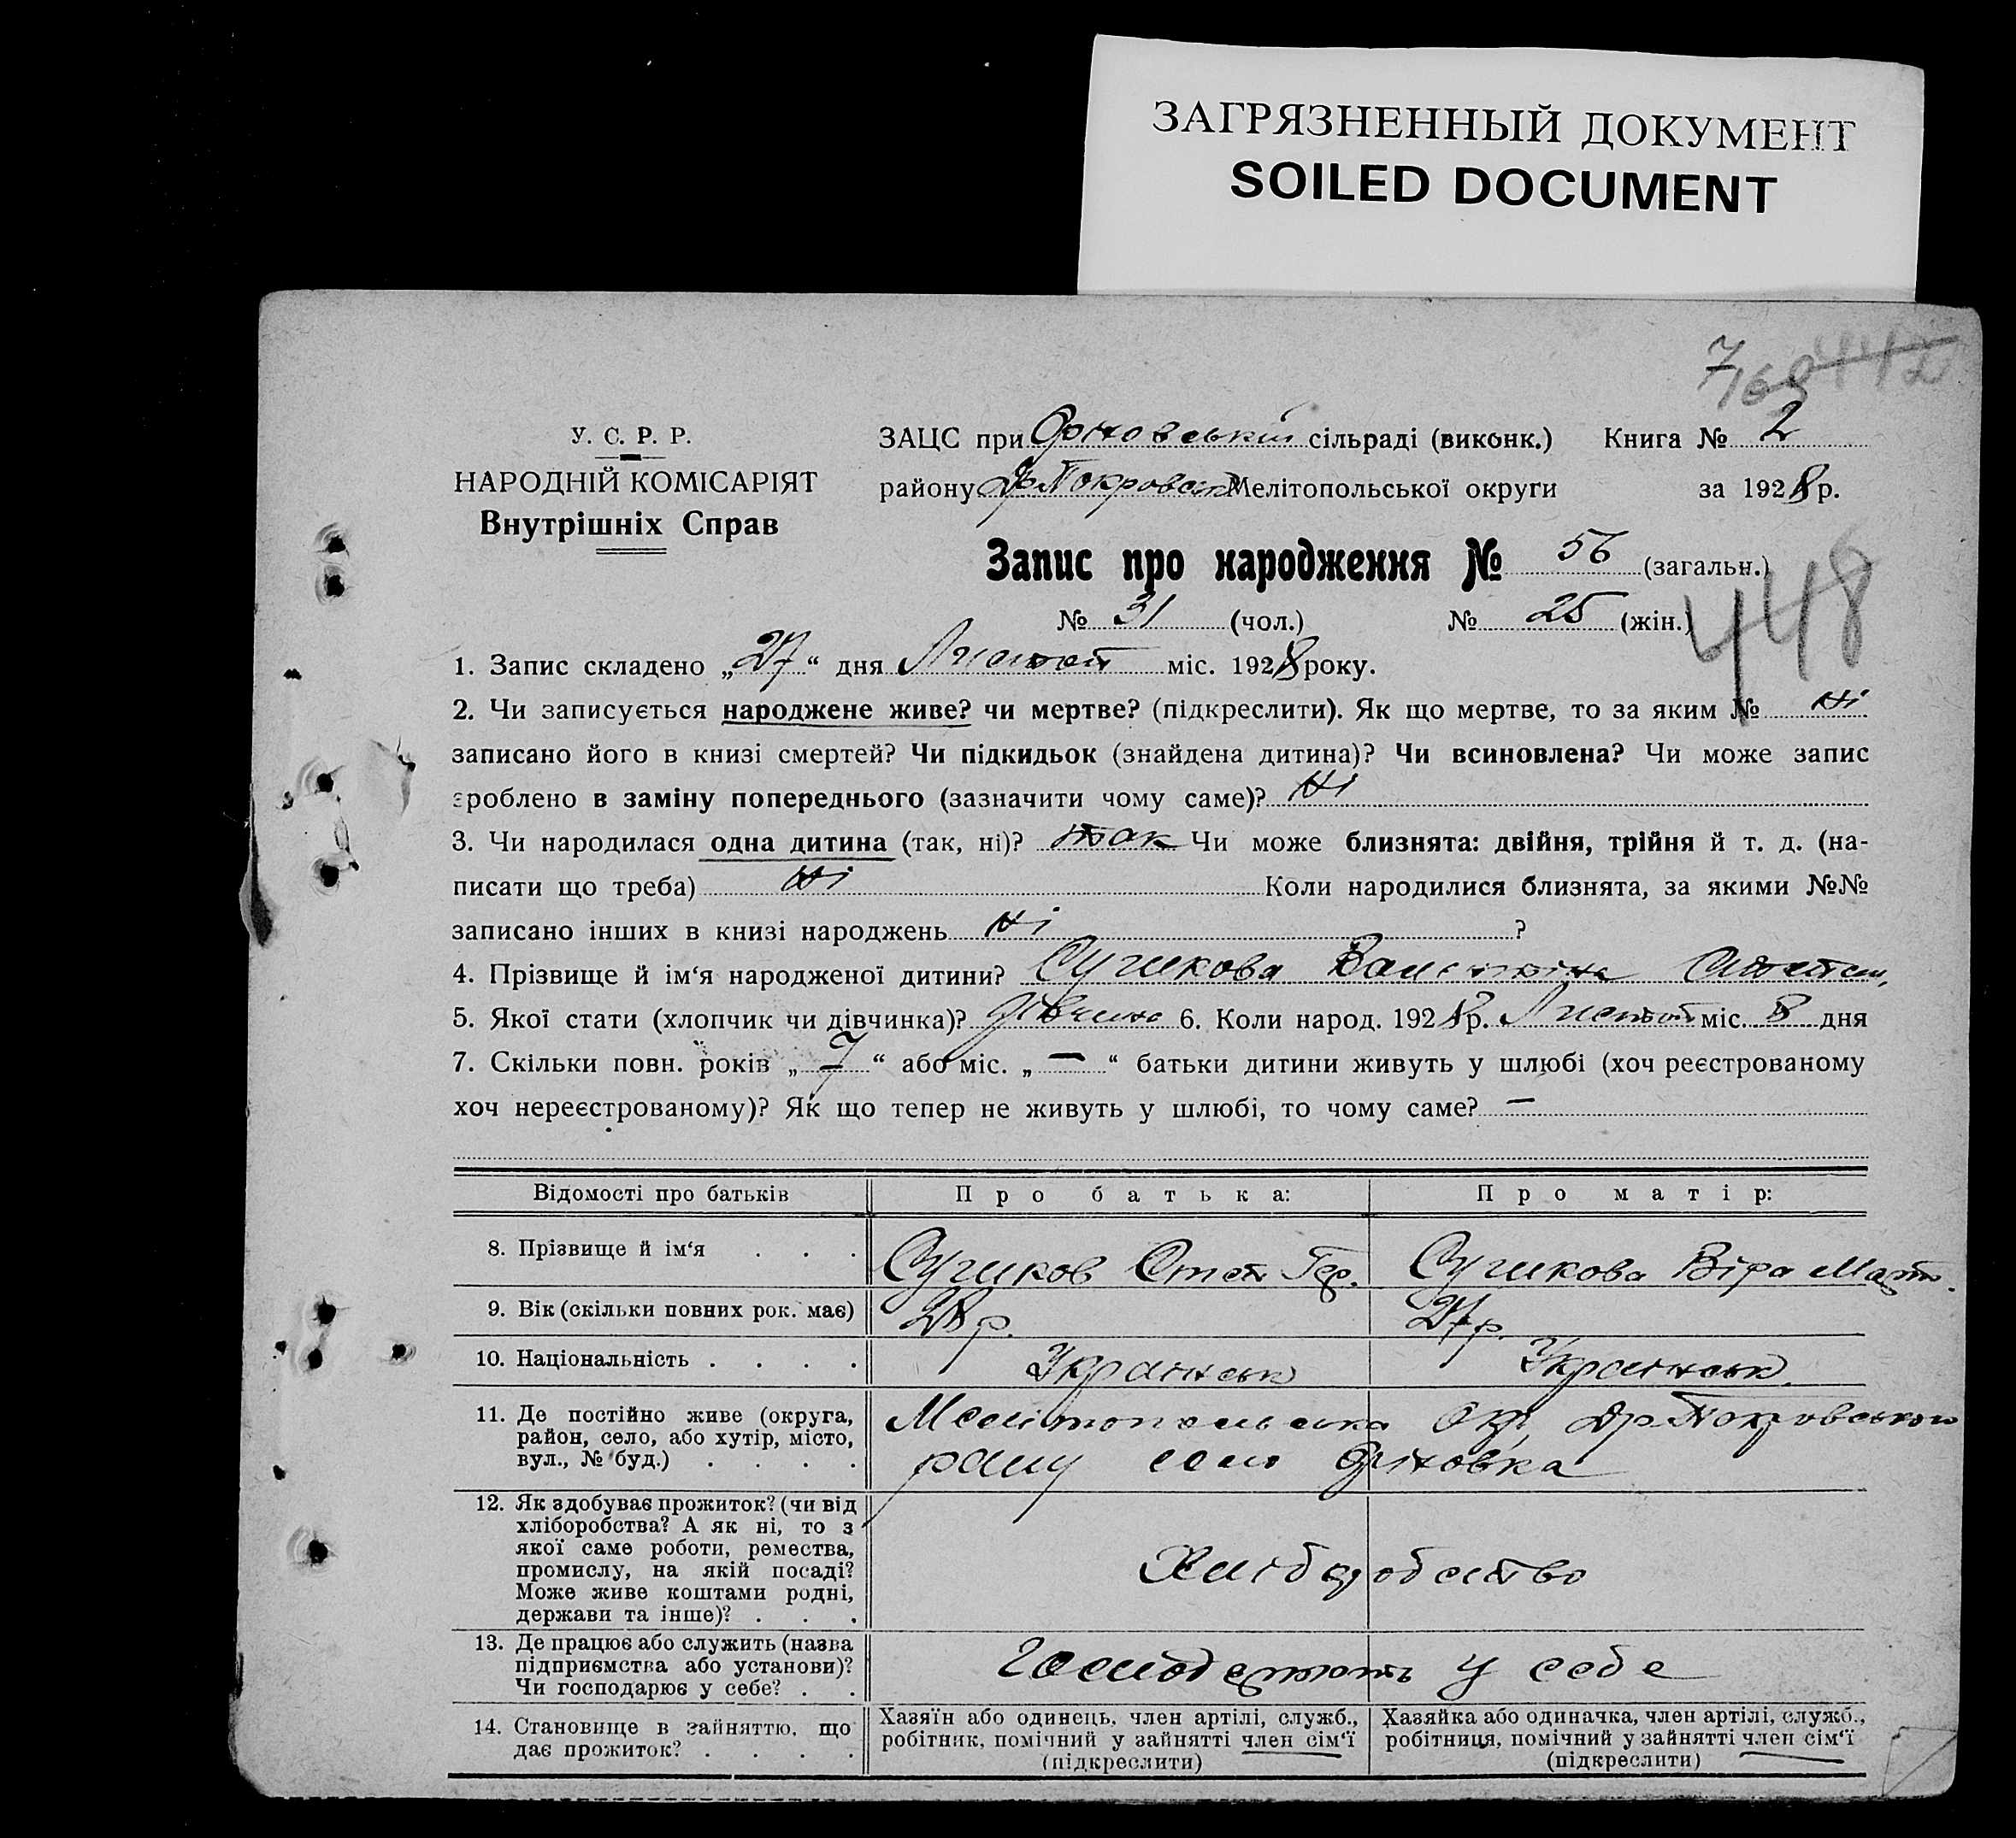 ЗАГРЯЗНЕННЫЙ ДОКУМЕНТ
SOILED DOCUMENT
У. С. Р. Р.
НАРОДНІЙ КОМІСАРІЯТ
Внутрішніх Справ
ЗАЦС при сільраді (виконк.) Книга № 2
району Мелітопольської округи за 1928 р.
Запис про народження № 56 (загальн.)
448
№ 31 (чол.) № 25 (жін.)
1. Запис складено „27“ дня Листоп міс. 1928 року.
2. Чи записується народжене живе? чи мертве? (підкреслити). Як що мертве, то за яким № ні
записано його в книзі смертей? Чи підкидьок (знайдена дитина)? Чи всиновлена? Чи може запис
зроблено в заміну попереднього (зазначити чому саме)? ні
3. Чи народилася одна дитина (так, ні)? так Чи може близнята: двійня, трійня й т. д. (на-
писати що треба) ні Коли народилися близнята, за якими №№
записано інших в книзі народжень ні ?
4. Прізвище й ім‘я народженої дитини? Сушкова Валентіна
5. Якої стати (хлопчик чи дівчинка)? 6. Коли народ. 1928 р. Листоп міс. 8 дня
7. Скільки повн. років „7“ або міс. „—“ батьки дитини живуть у шлюбі (хоч реєстрованому
хоч нереєстрованому)? Як що тепер не живуть у шлюбі, то чому саме? —
Відомості про батьків Про батька: Про матір:
8. Прізвище й ім‘я . . . Сушков Степ Гр. Сушкова Віра
9. Вік (скільки повних рок. має) 28 р. 27 р.
10. Національність . . . . Українськ Українськ.
11. Де постійно живе (округа,
район, село, або хутір, місто,
вул., № буд.) . . . .
Мелітопольська окр,
райну село Оріховка
12. Як здобуває прожиток? (чи від
хліборобства? А як ні, то з
якої саме роботи, ремества,
промислу, на якій посаді?
Може живе коштами родні,
держави та інше)? . . .
Хліборобство
13. Де працює або служить (назва
підприємства або установи)?
Чи господарює у себе? . .
у себе
14. Становище в зайняттю, що
дає прожиток? . . . .
Хазяїн або одинець, член артілі, служб.,
робітник, помічний у зайнятті член сім‘ї
(підкреслити)
Хазяйка або одиначка, член артілі, служб.,
робітниця, помічний у зайнятті член сім‘ї
(підкреслити)